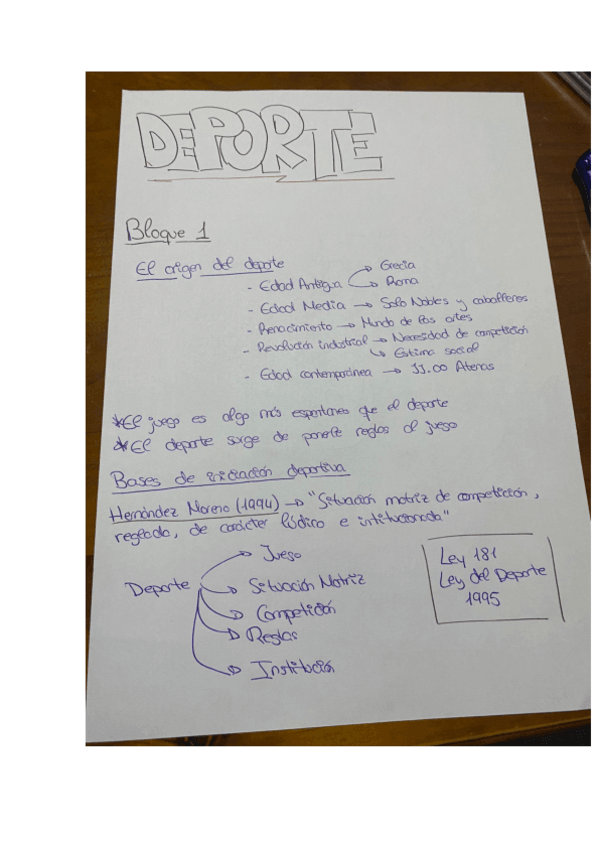 DEPORTE
Bloque 1
El origen del deporte
- Edad Antigua → Grecia
→ Roma
- Edad Media → Solo Nobles y caballeros
- Renacimiento → Mundo de las artes
- Revolución industrial → Necesidad de competición
↳ Estima social
- Edad contemporánea → JJ.OO Atenas
*El juego es algo más espontaneo que el deporte
*El deporte surge de ponerle reglas al juego
Bases de iniciación deportiva
Hernández Moreno (1994) → "Situación motriz de competición,
reglada, de carácter lúdico e intitucionada"
Deporte → Juego
→ Situación Motriz
→ Competición
→ Reglas
→ Institución
Ley 181
Ley del Deporte
1995